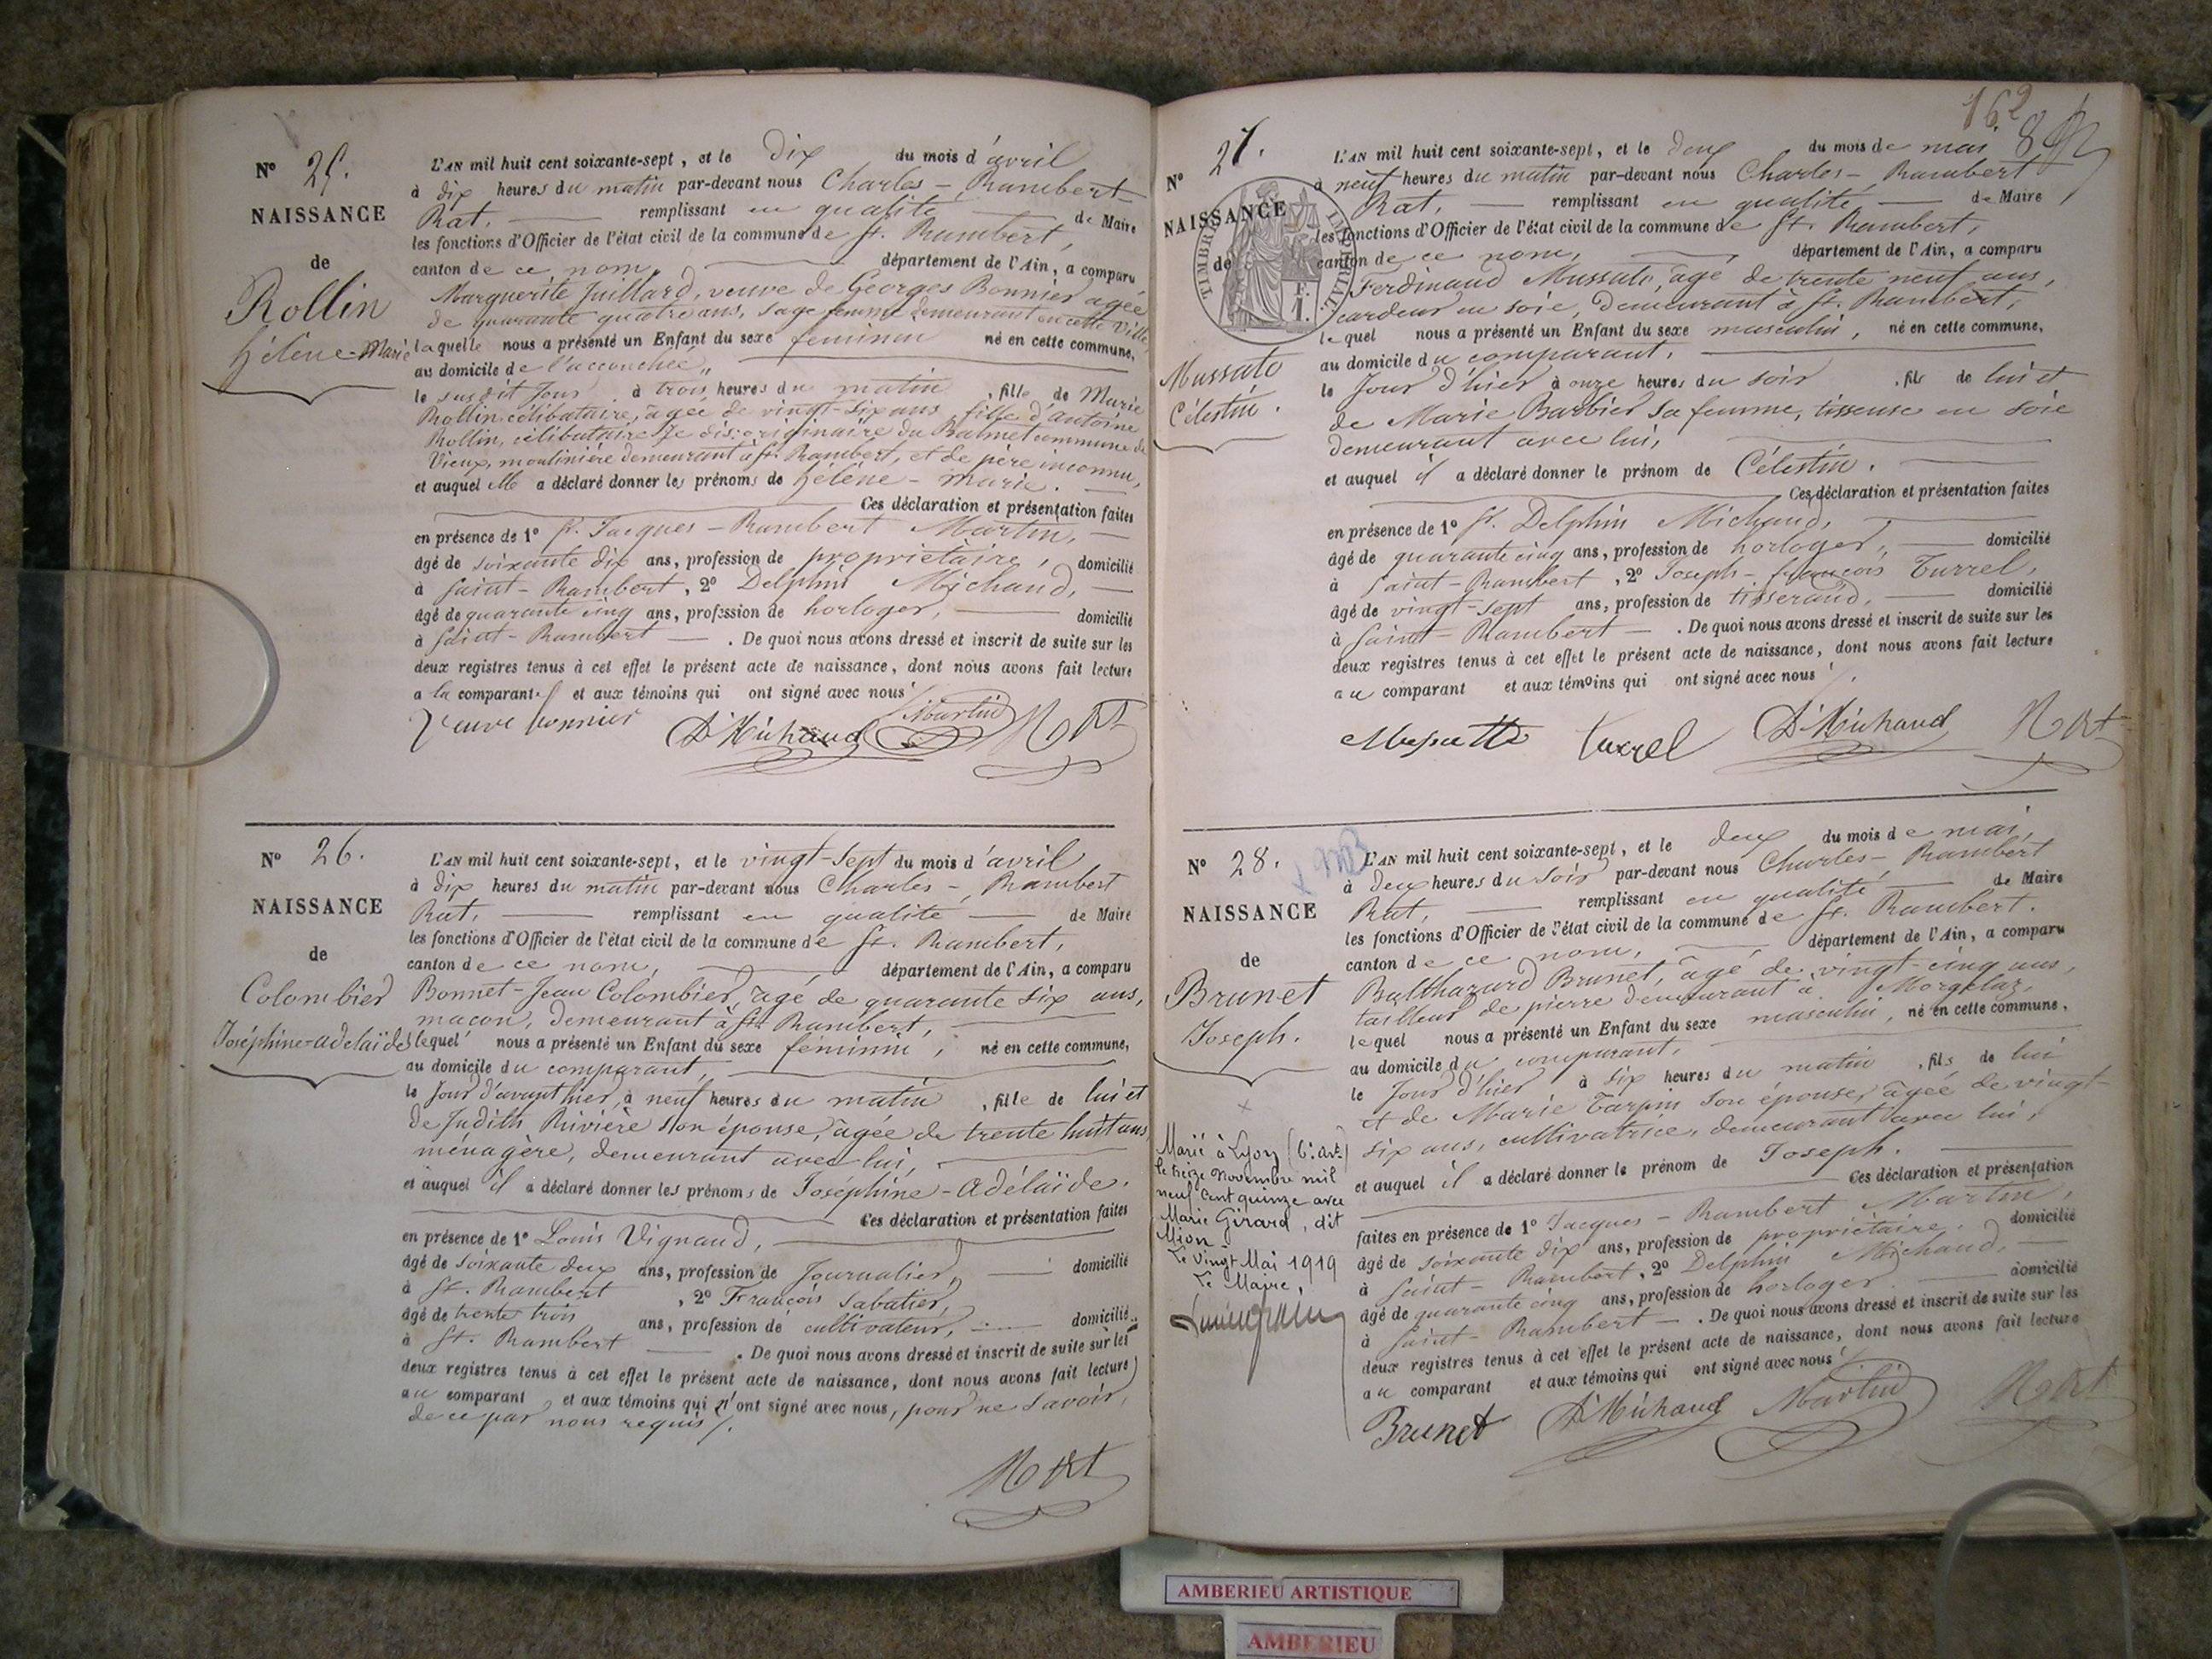 N° 25.
NAISSANCE
de
Rollin
Hélène-Marie
L'AN mil huit cent soixante-sept, et le dix du mois d'avril
à dix heures du matin par-devant nous Charles-Rambert-
Rat, remplissant en qualité de Maire
les fonctions d'Officier de l'état civil de la commune de St. Rambert,
canton de ce nom, département de l'Ain, a comparu
Marguerite Juillard, veuve de Georges Bonnier agée
de quarante quatre ans, sage femme demeurant en cette ville
laquelle nous a présenté un Enfant du sexe féminin né en cette commune,
au domicile de l'accouchée,
le susdit jour à trois heures du matin, fille de Marie
Rollin célibataire, âgée de vingt-six ans, fille d'antoine
Rollin, célibataire, se dis: originaire du Balmet commune de
Vieux, moulinière demeurant à St. Rambert, et de père inconnu,
et auquel elle a déclaré donner les prénoms de Hélène-Marie.
Ces déclaration et présentation faites
en présence de 1° St. Jacques-Rambert Martin,
âgé de soixante dix ans, profession de propriétaire, domicilié
à Saint-Rambert, 2° Delphin Michaud,
âgé de quarante cinq ans, profession de horloger, domicilié
à Saint-Rambert. De quoi nous avons dressé et inscrit de suite sur les
deux registres tenus à cet effet le présent acte de naissance, dont nous avons fait lecture
a la comparante et aux témoins qui ont signé avec nous
Veuve bonnier D. Michaud Martin Rat
N° 26.
NAISSANCE
de
Colombier
Joséphine-adelaïde
L'AN mil huit cent soixante-sept, et le vingt-sept du mois d'avril
à dix heures du matin par-devant nous Charles-Rambert
Rat, remplissant en qualité de Maire
les fonctions d'Officier de l'état civil de la commune de St. Rambert,
canton de ce nom, département de l'Ain, a comparu
Bonnet-Jean Colombier, âgé de quarante six ans,
maçon, demeurant à St. Rambert,
lequel nous a présenté un Enfant du sexe féminin, né en cette commune,
au domicile du comparant,
le jour d'avant hier, à neuf heures du matin, fille de lui et
de Judith Rivière son épouse, âgée de trente huit ans
ménagère, demeurant avec lui,
et auquel il a déclaré donner les prénoms de Joséphine-Adélaïde.
Ces déclaration et présentation faites
en présence de 1° Louis Vignaud,
âgé de soixante deux ans, profession de journalier, domicilié
à St. Rambert, 2° François Sabatier,
âgé de trente trois ans, profession de cultivateur, domicilié
à St. Rambert. De quoi nous avons dressé et inscrit de suite sur les
deux registres tenus à cet effet le présent acte de naissance, dont nous avons fait lecture
au comparant, et aux témoins qui n'ont signé avec nous, pour ne savoir,
de ce par nous requis.
Rat
162
8
N° 27.
NAISSANCE
de
TIMBRE IMPERIAL
Mussato
Célestin.
L'AN mil huit cent soixante-sept, et le deux du mois de mai
à neuf heures du matin par-devant nous Charles-Rambert
Rat, remplissant en qualité de Maire
les fonctions d'Officier de l'état civil de la commune de St. Rambert,
canton de ce nom, département de l'Ain, a comparu
Ferdinand Mussato, âgé de trente neuf ans,
cardeur en soie, demeurant à St. Rambert,
lequel nous a présenté un Enfant du sexe masculin, né en cette commune,
au domicile du comparant,
le jour d'hier à onze heures du soir, fils de lui et
de Marie Barbier sa femme, tisseuse en soie
demeurant avec lui,
et auquel il a déclaré donner le prénom de Célestin.
Ces déclaration et présentation faites
en présence de 1° St. Delphin Michaud,
âgé de quarante cinq ans, profession de horloger, domicilié
à Saint-Rambert, 2° Joseph-françois Turrel,
âgé de vingt-sept ans, profession de tisserand, domicilié
à Saint-Rambert. De quoi nous avons dressé et inscrit de suite sur les
deux registres tenus à cet effet le présent acte de naissance, dont nous avons fait lecture
au comparant et aux témoins qui ont signé avec nous
turrel D. Michaud Rat
N° 28.
NAISSANCE
de
Brunet
Joseph.
L'AN mil huit cent soixante-sept, et le deux du mois de mai,
à deux heures du soir par-devant nous Charles-Rambert
Rat, remplissant en qualité de Maire
les fonctions d'Officier de l'état civil de la commune de St. Rambert.
canton de ce nom, département de l'Ain, a comparu
Balthazard Brunet, âgé de vingt-cinq ans,
tailleur de pierre demeurant à Morgelaz,
lequel nous a présenté un Enfant du sexe masculin, né en cette commune,
au domicile du comparant,
le jour d'hier à six heures du matin, fils de lui
et de Marie Tarpin son épouse, âgée de vingt-
six ans, cultivatrice, demeurant avec lui,
et auquel il a déclaré donner le prénom de Joseph.
Ces déclaration et présentation
faites en présence de 1° Jacques-Rambert Martin,
âgé de soixante dix ans, profession de propriétaire, domicilié
à Saint-Rambert, 2° Delphin Michaud,
âgé de quarante cinq ans, profession de horloger domicilié
à Saint-Rambert. De quoi nous avons dressé et inscrit de suite sur les
deux registres tenus à cet effet le présent acte de naissance, dont nous avons fait lecture
au comparant et aux témoins qui ont signé avec nous
Brunet D. Michaud Martin Rat
Marié à Lyon (6e art.)
le treize novembre mil
neuf cent quinze avec
Marie Girard, dit
Mion
Le vingt Mai 1919
Le Maire,
AMBERIEU ARTISTIQUE
AMBERIEU